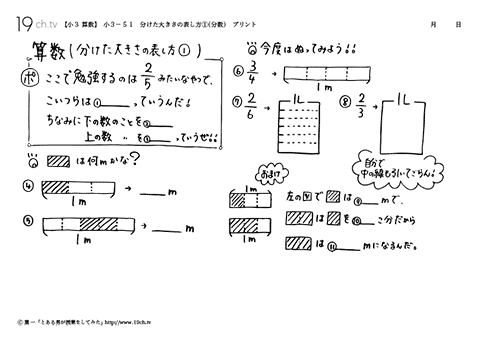 19ch.tv 【小3 算数】 小3－51 分けた大きさの表し方①(分数) プリント 月 日
算数(分けた大きさの表し方①)
ポ ここで勉強するのは 2/5 みたいなやつで、
こいつらは①____っていうんだ!
ちなみに下の数のことを②____
上の数 〃 を③____っていうぜ!!
は何mかな?
④ → ____ m
1m
⑤ → ____ m
1m
今度はぬってみよう!!
⑥ 3/4 →
1m
⑦ 2/6 → 1L
⑧ 2/3 → 1L
自分で
中の線も引いてごらん!
おまけ
1m
左の図で は⑨____mで、
は を⑩____こ分だから
1m
は⑪____mになるんだ。
Ⓒ 葉一「とある男が授業をしてみた」http://www.19ch.tv